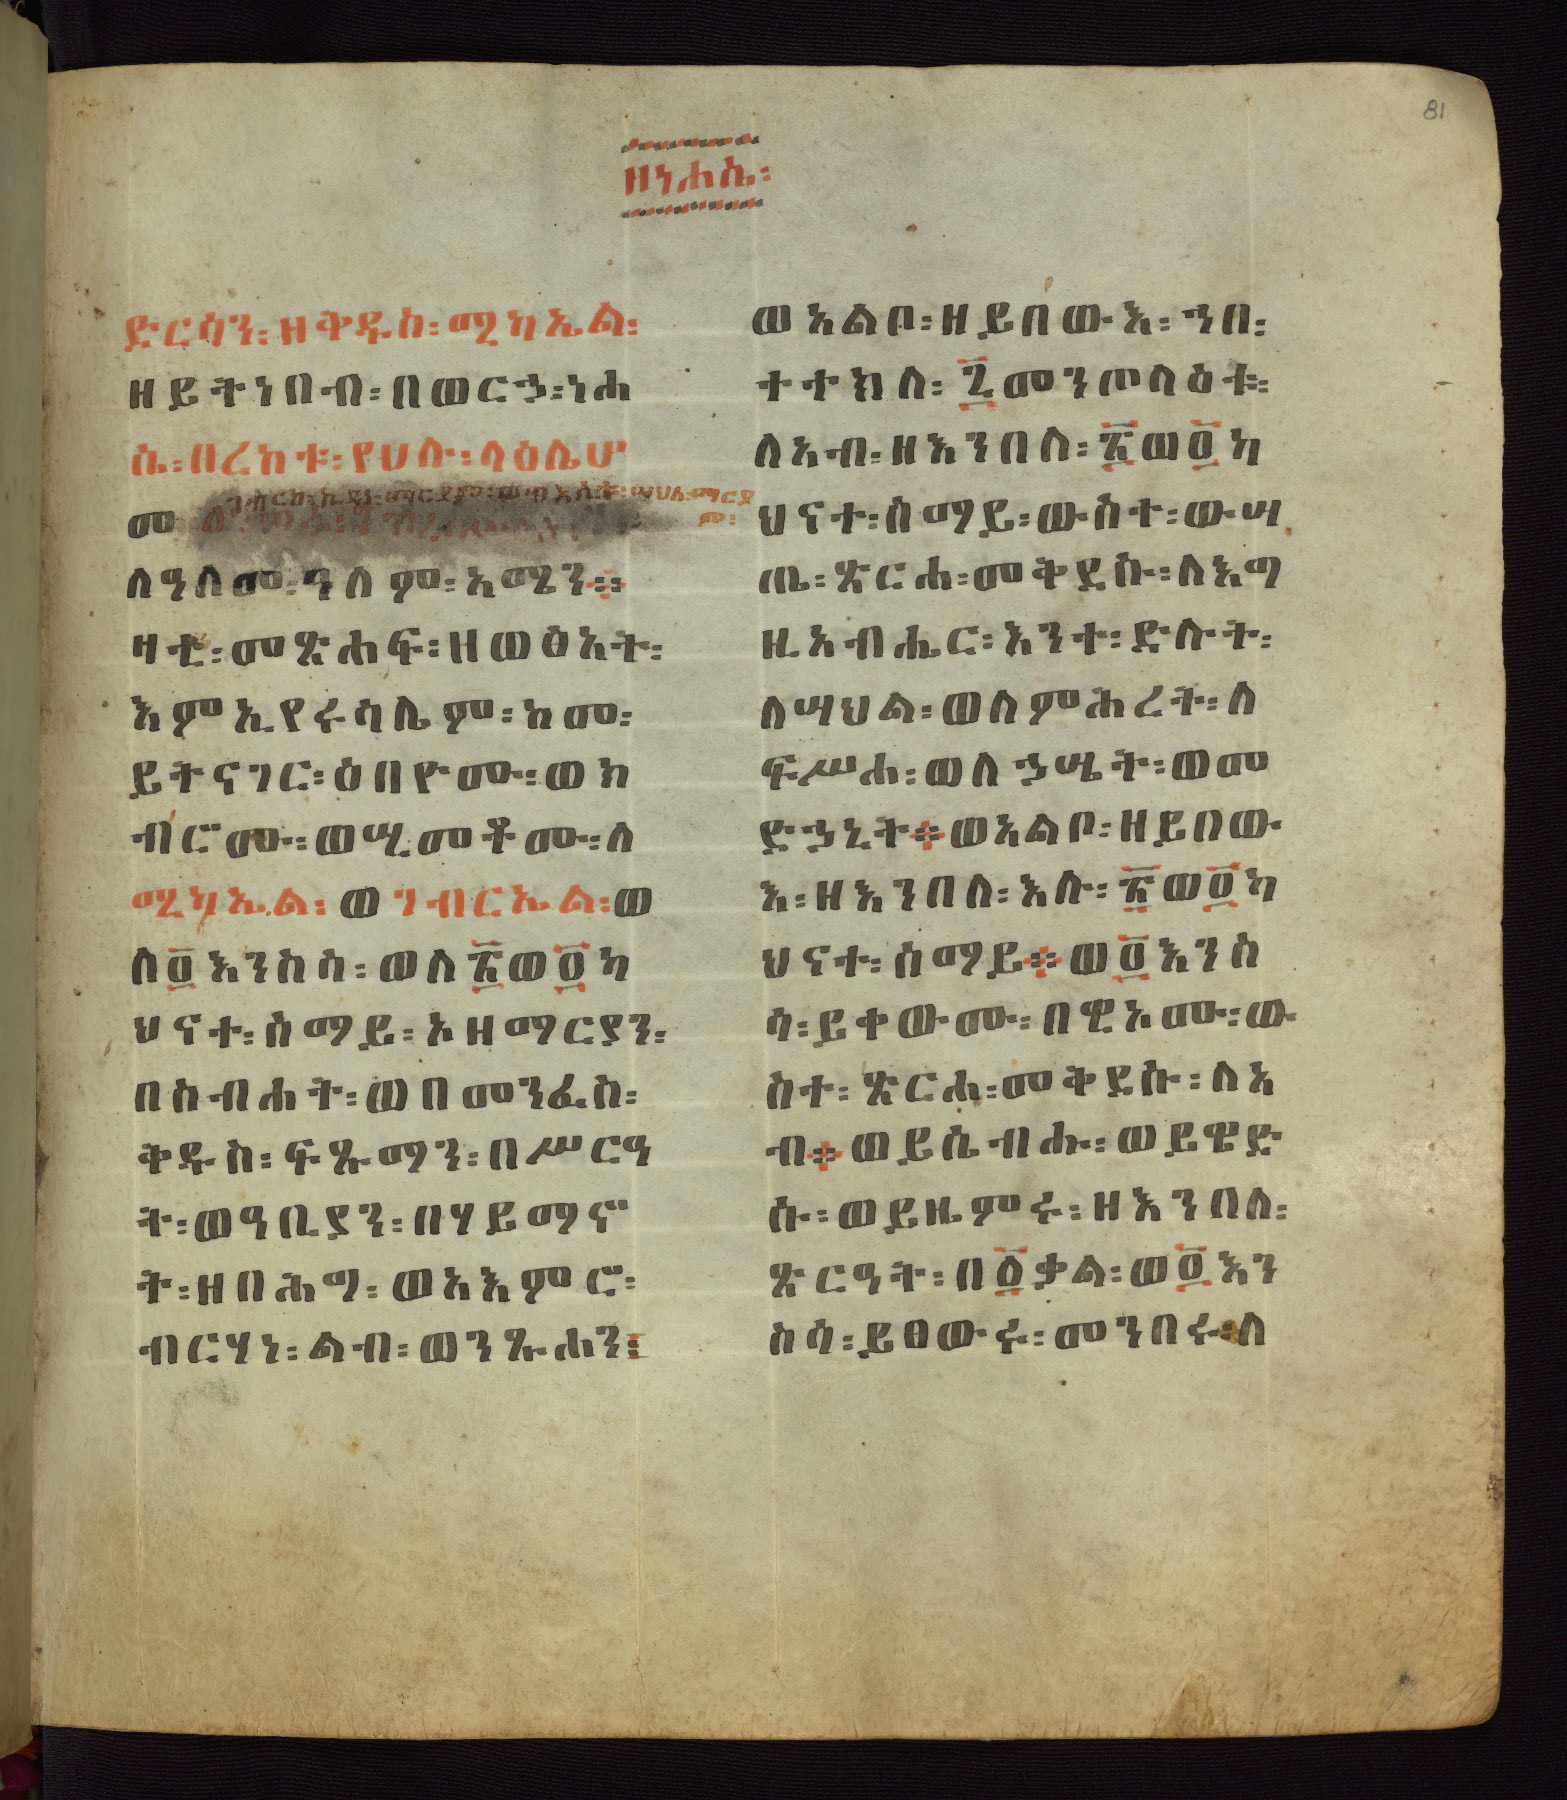 81
ዘነሐሴ፡
ድርሳን፡ዘቅዱስ፡ሚካኤል፡
ዘይትነበብ፡በወርኃ፡ነሐ
ሴ፡በረከቱ፡የሀሉ፡ላዕሌሆ
መ
ለዓለመ፡ዓለም፡አሜን።
ዛቲ፡መጽሐፍ፡ዘወፅአት፡
እምኢየሩሳሌም፡ከመ፡
ይትናገር፡ዕበዮሙ፡ወክ
ብሮሙ፡ወሢመቶሙ፡ለ
ሚካኤል፡ወገብርኤል፡ወ
ለ፬እንስሳ፡ወለ፳ወ፬ካ
ህናተ፡ሰማይ፡አዘማርያን፡
በስብሐት፡ወበመንፈስ፡
ቅዱስ፡ፍጹማን፡በሥርዓ
ት፡ወዓቢያን፡በሃይማኖ
ት፡ዘበሕግ፡ወአእምሮ፡
ብርሃነ፡ልብ፡ወንጹሐን፡
ወአልቦ፡ዘይበውእ፡ኀበ፡
ተተክለ፡፯መንጦላዕቱ፡
ለአብ፡ዘእንበለ፡፳ወ፬ካ
ህናተ፡ሰማይ፡ውስተ፡ውሣ
ጤ፡ጽርሐ፡መቅደሱ፡ለእግ
ዚአብሔር፡እንተ፡ድሉት፡
ለሣህል፡ወለምሕረት፡ለ
ፍሥሐ፡ወለኃሤት፡ወመ
ድኃኒት።ወአልቦ፡ዘይበው
እ፡ዘእንበለ፡እሉ፡፳ወ፬ካ
ህናተ፡ሰማይ።ወ፬እንስ
ሳ፡ይቀውሙ፡በዊአሙ፡ው
ስተ፡ጽርሐ፡መቅደሱ፡ለአ
ብ።ወይሴብሑ፡ወይዌድ
ሱ፡ወይዜምሩ፡ዘእንበለ፡
ጽርዓት፡በ፩ቃል፡ወ፬እን
ስሳ፡ይፀውሩ፡መንበሩ፡ለ